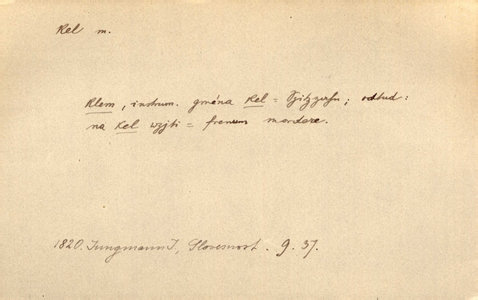 Kel m.
Klem, instrum. gména Kel = Spitzzahn; odtud:
na Kel wzjti = frenum mordere.
1820. Jungmann J., Slovesnost. 9. 37.